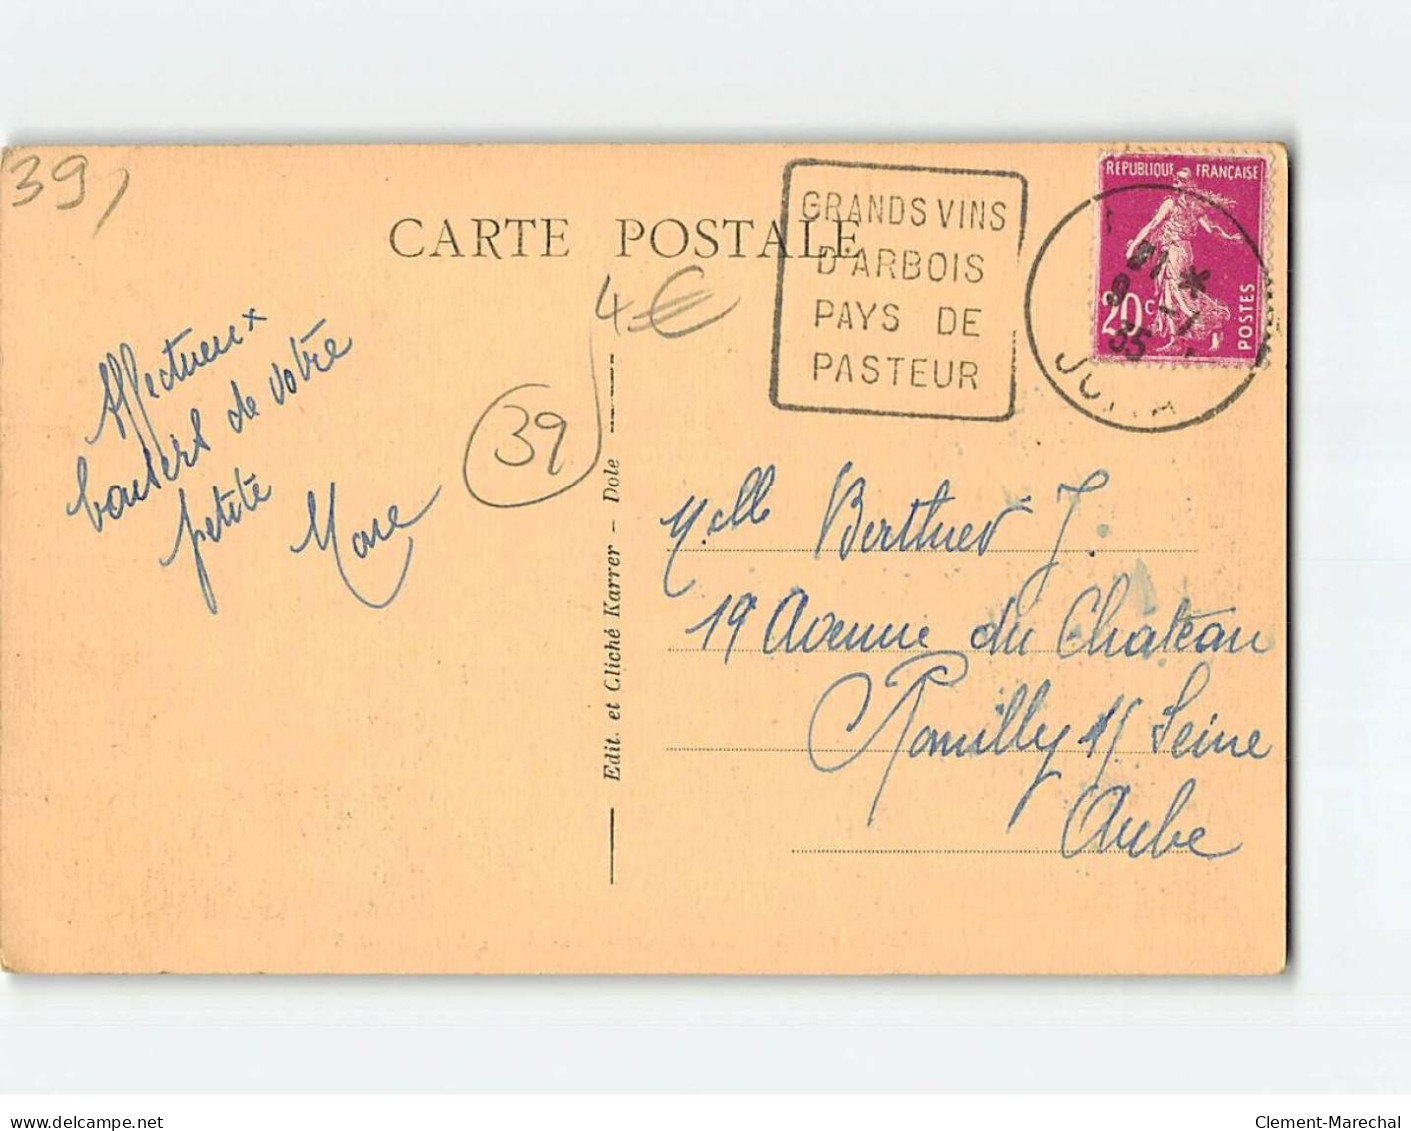 39
CARTE POSTALE
GRANDS VINS
D'ARBOIS
PAYS DE
PASTEUR
REPUBLIQUE FRANÇAISE
20c
POSTES
9 - 1
35
JURA
4€
39
Affectueux
baisers de votre
petite
Edit. et Cliché Karrer - Dole
Melle Berthier J.
19 Avenue du Chateau
Romilly s/ Seine
Aube
www.delcampe.net
Clement-Marechal